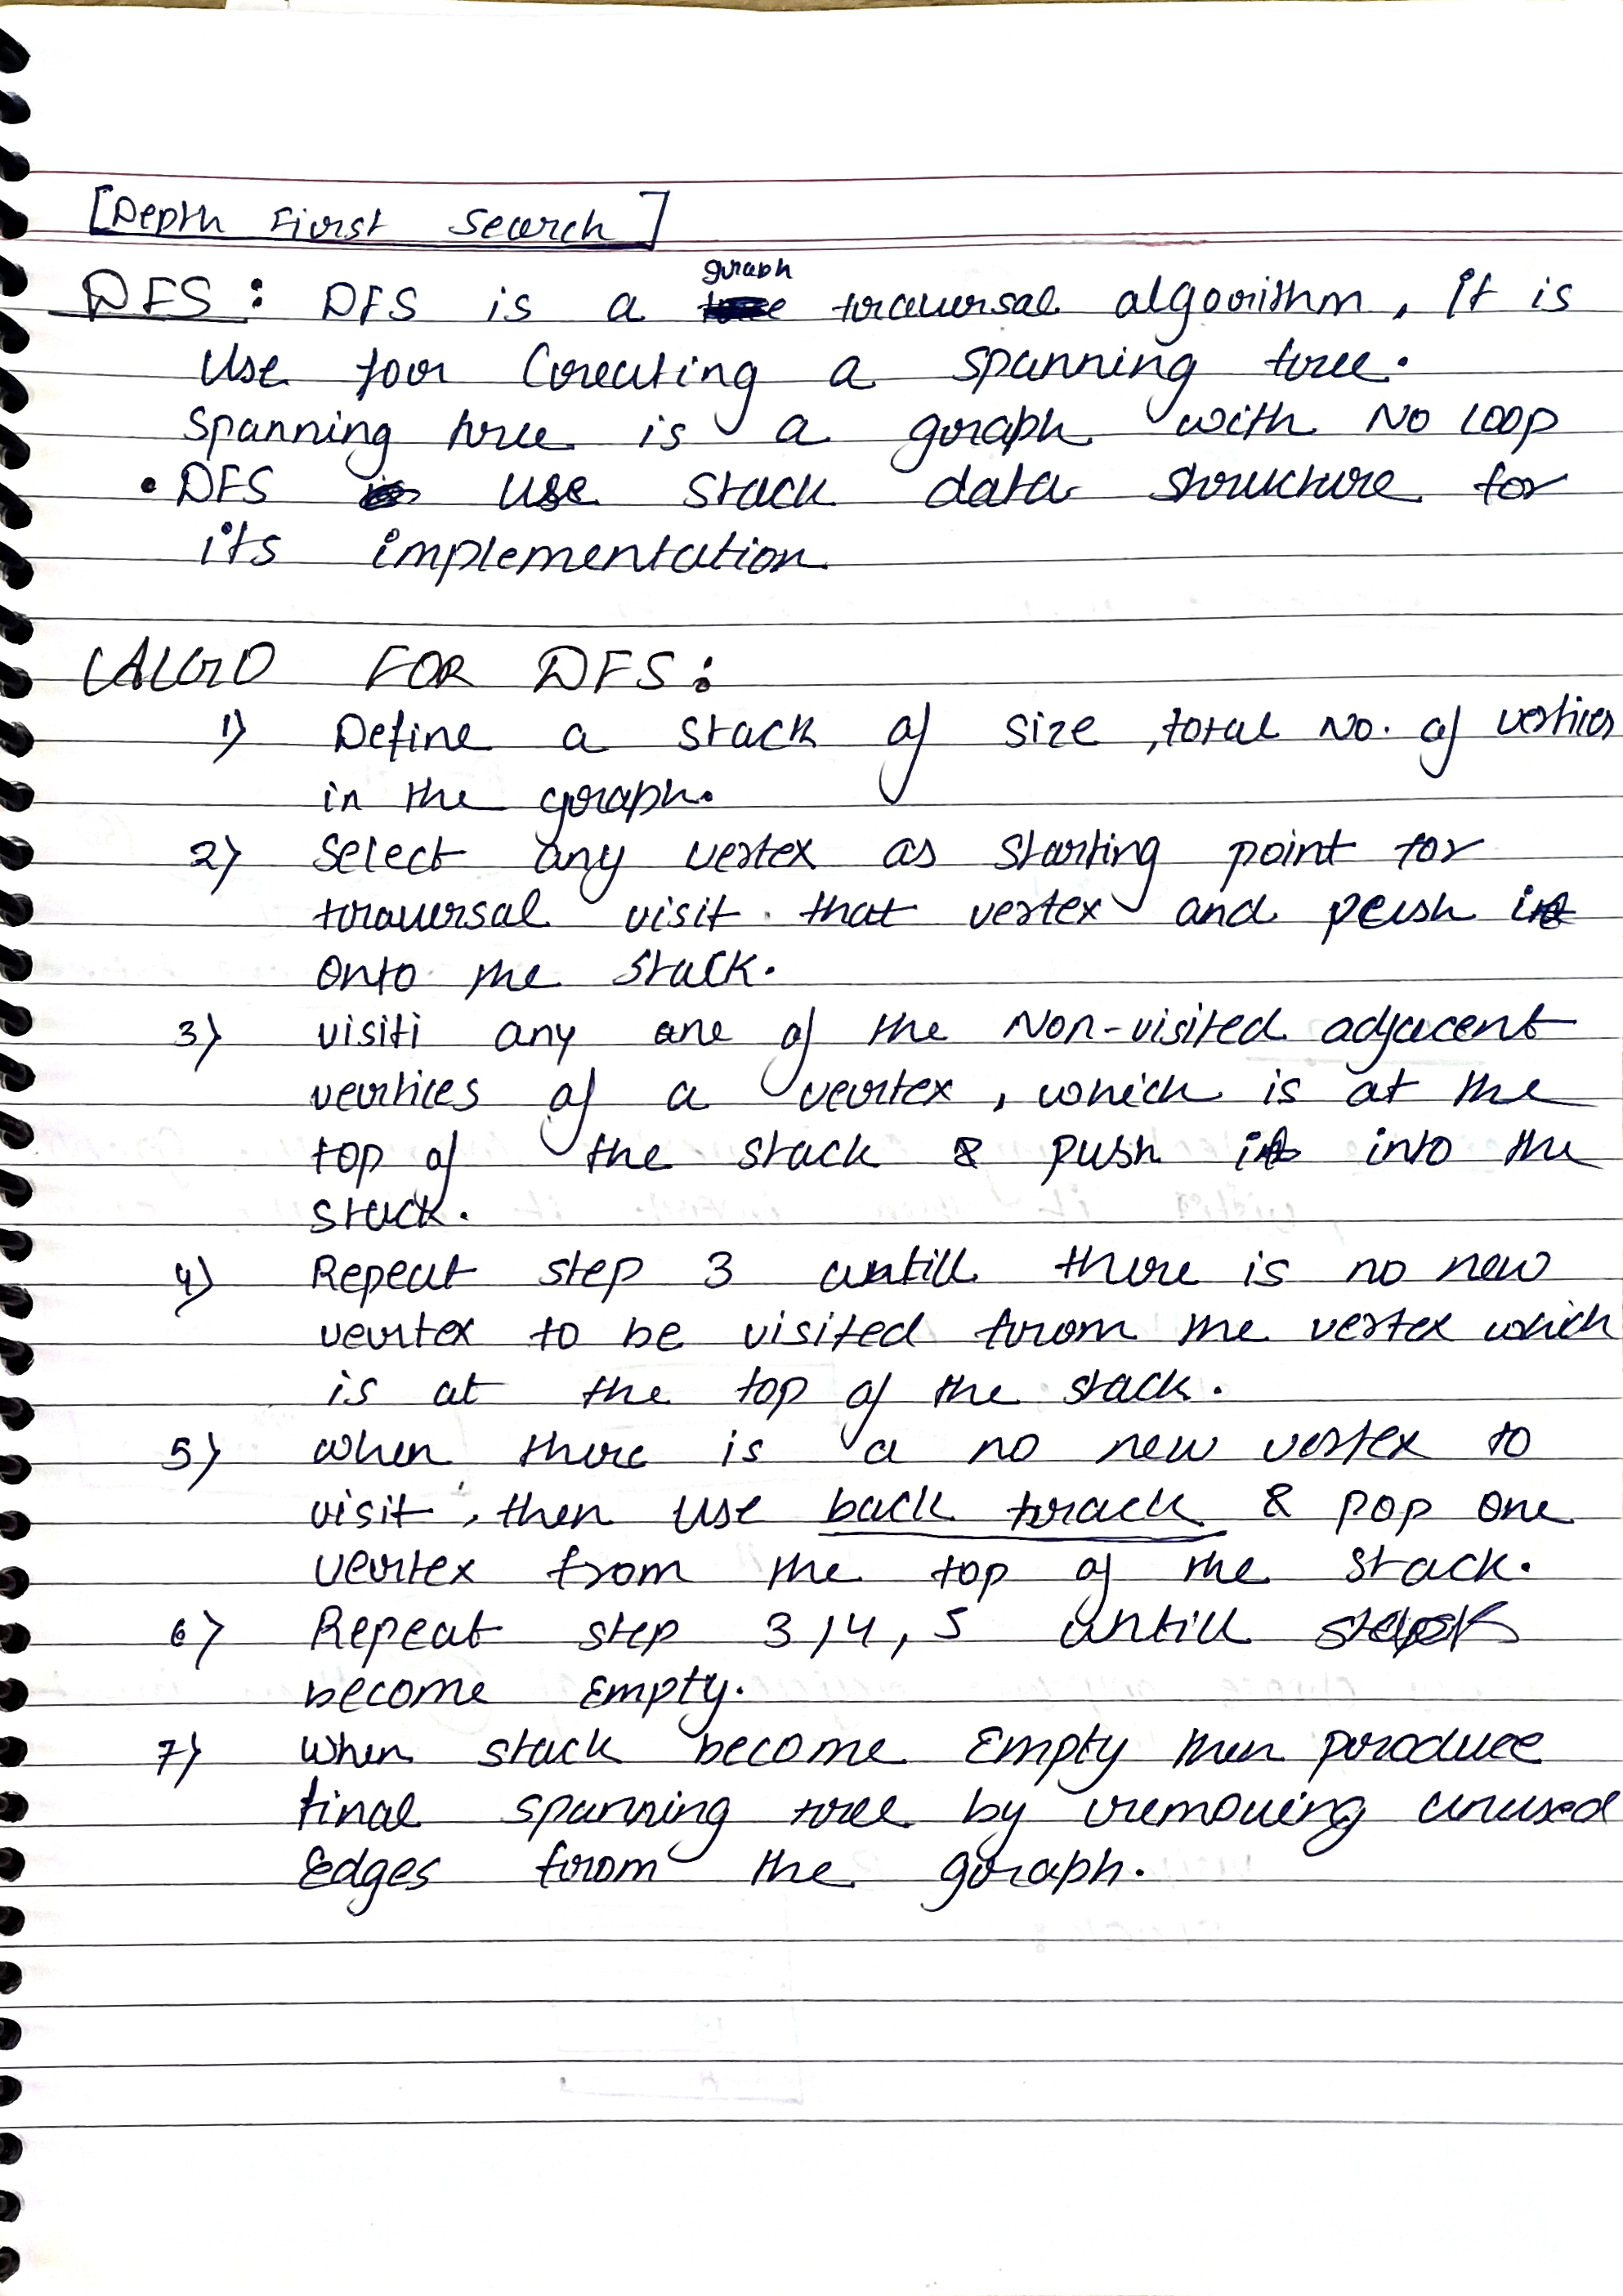 [Depth First Search]
graph
DFS : DFS is a traversal algorithm, It is
Use for Creating a spanning tree.
Spanning tree is a graph with No loop
• DFS use stack data structure for
its implementation
ALGO FOR DFS :
1) Define a stack of size, total No. of vertices
in the graph.
2) Select any vertex as starting point for
traversal visit that vertex and push it
onto the stack.
3) visiti any one of the Non-visited adjacent
vertices of a vertex, which is at the
top of the stack & push it into the
stack.
4) Repeat step 3 untill there is no new
vertex to be visited from the vertex which
is at the top of the stack.
5) when there is a no new vertex to
visit, then use back track & pop one
vertex from the top of the stack.
6) Repeat step 3,4,5 untill stack
become Empty.
7) When stack become Empty then produce
final spanning tree by removing unused
Edges from the graph.